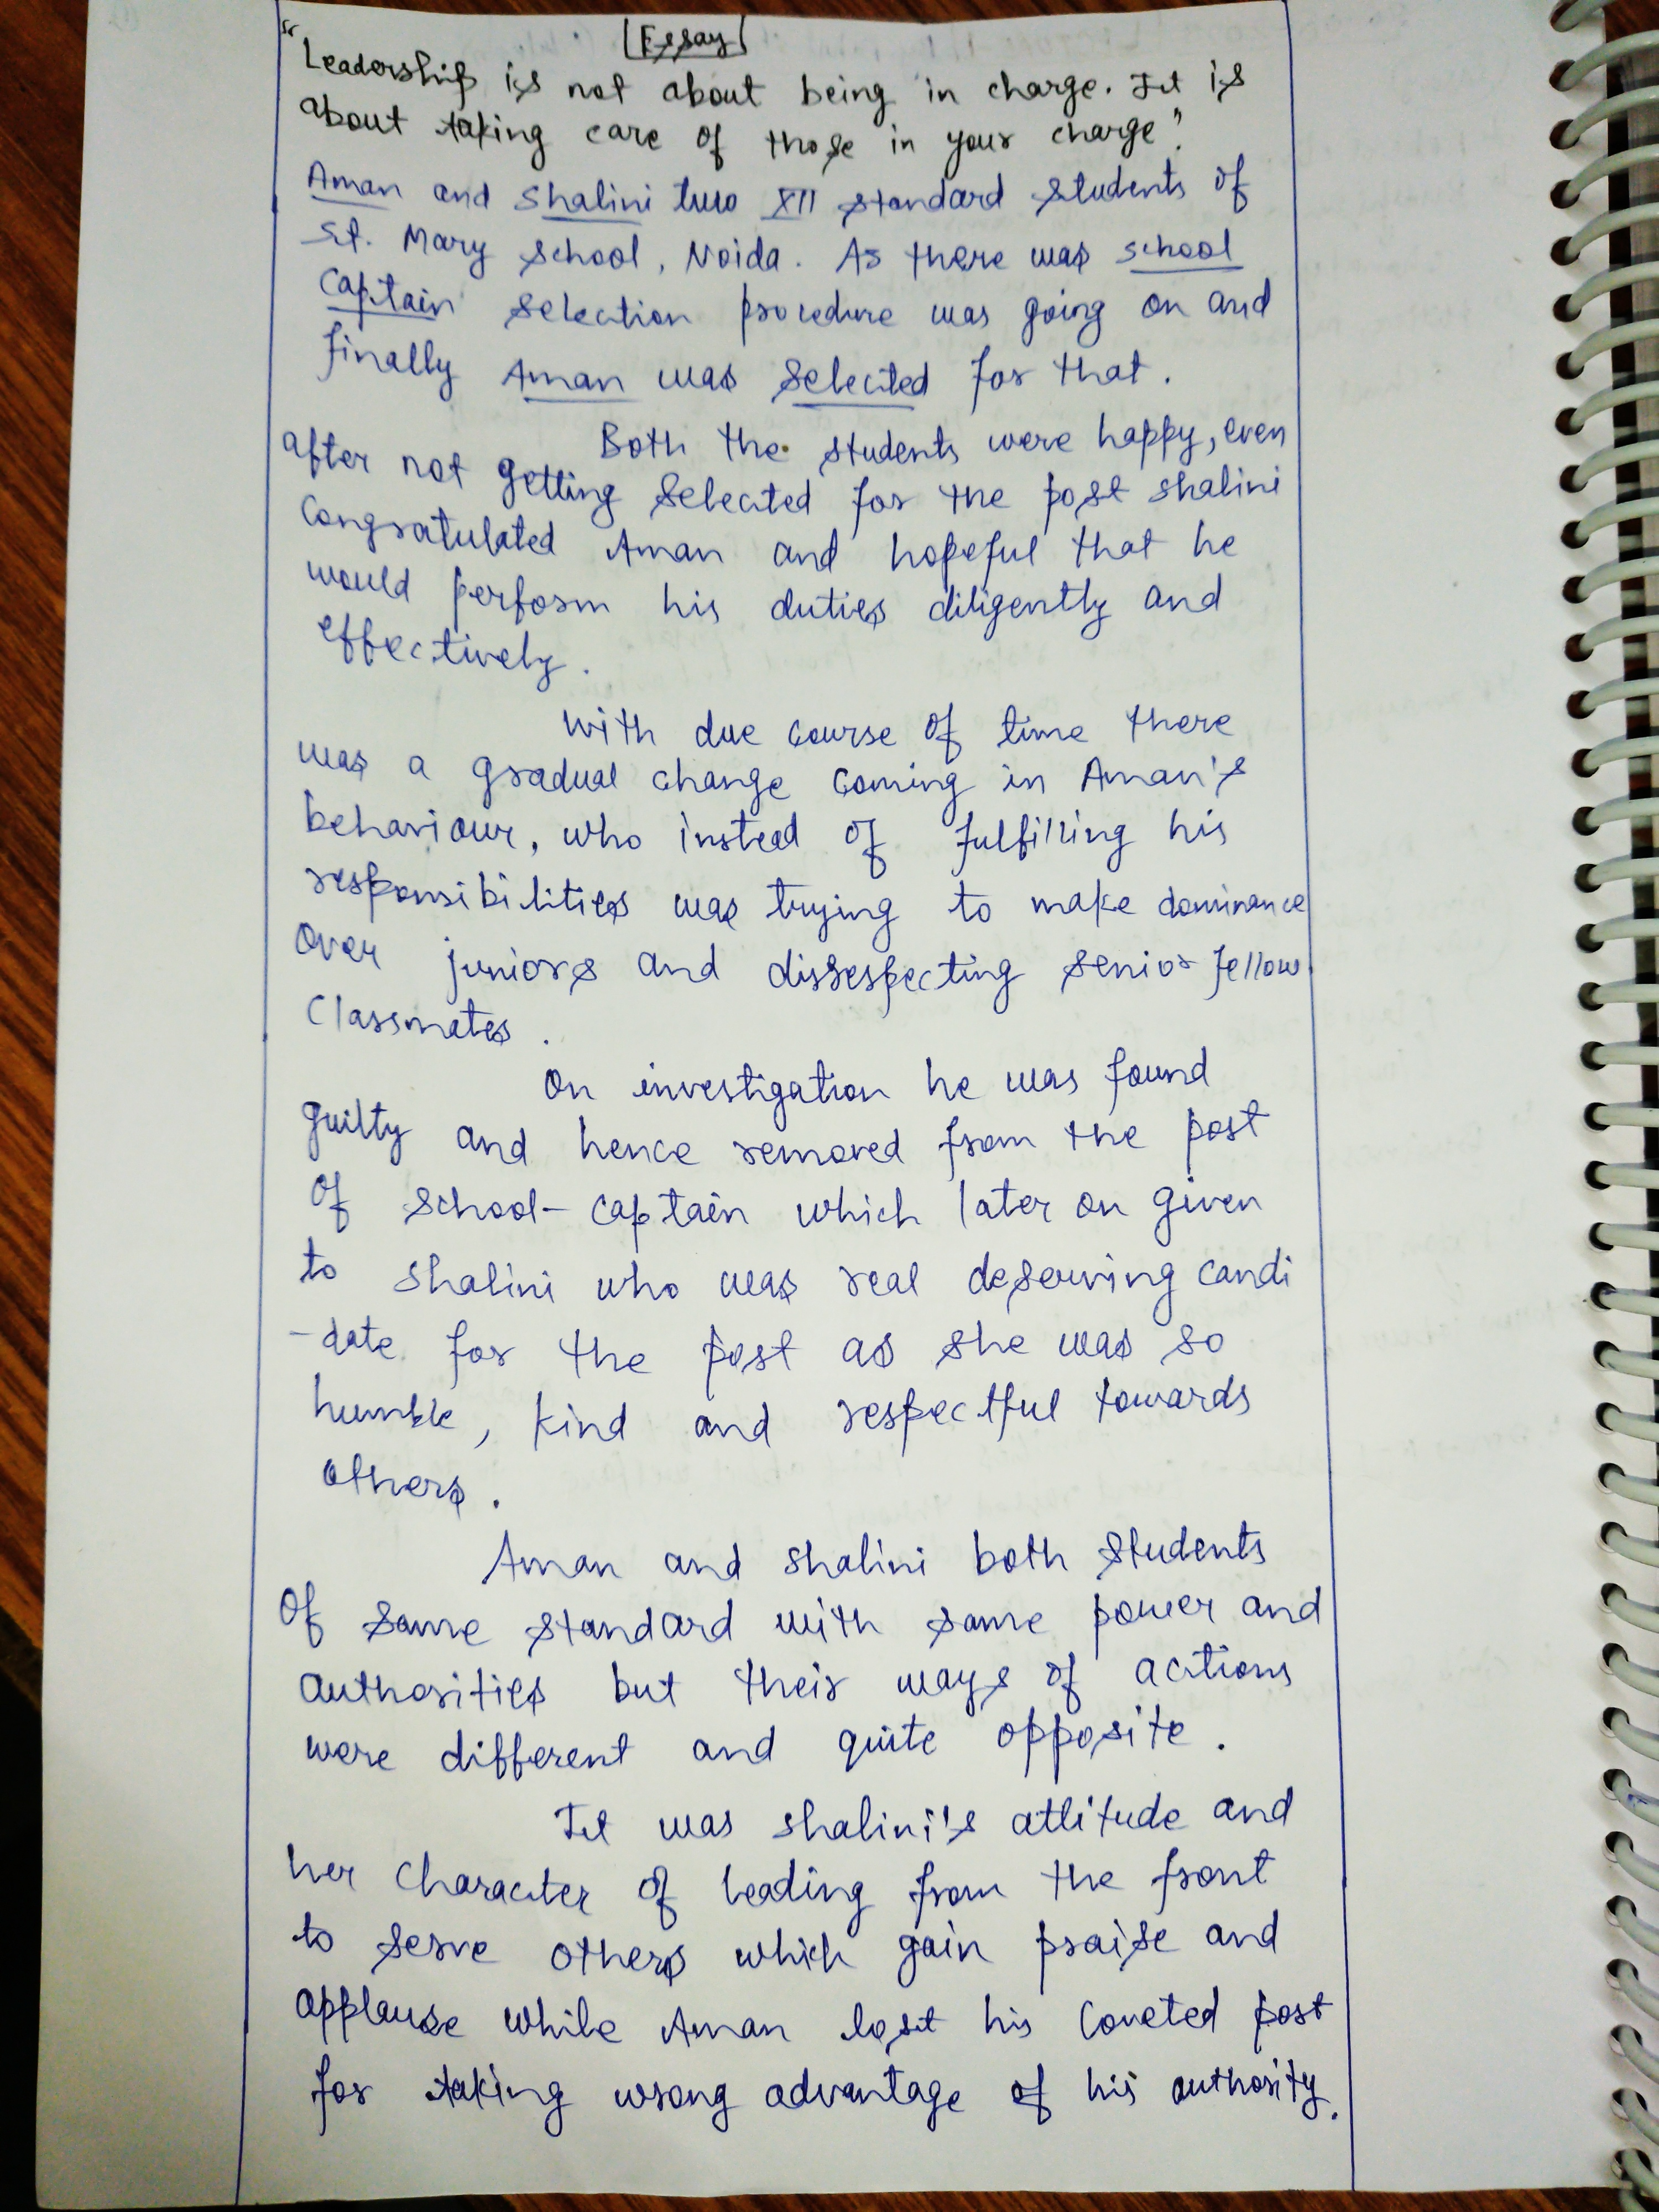 [Essay]
"Leadership is not about being in charge. It is
about taking care of those in your charge".
Aman and Shalini two XII standard students of
St. Mary School, Noida. As there was school
captain selection procedure was going on and
finally Aman was selected for that.
Both the students were happy, even
after not getting selected for the post shalini
congratulated Aman and hopeful that he
would perform his duties diligently and
effectively.
With due course of time there
was a gradual change coming in Aman's
behaviour, who instead of fulfilling his
responsibilities was trying to make dominance
over juniors and disrespecting senior fellow
classmates.
On investigation he was found
guilty and hence removed from the post
of school-captain which later on given
to shalini who was real deserving candi
-date for the post as she was so
humble, kind and respectful towards
others.
Aman and shalini both students
of same standard with same power and
authorities but their ways of actions
were different and quite opposite.
It was shalini's attitude and
her character of leading from the front
to serve others which gain praise and
applause while Aman lost his coveted post
for taking wrong advantage of his authority.